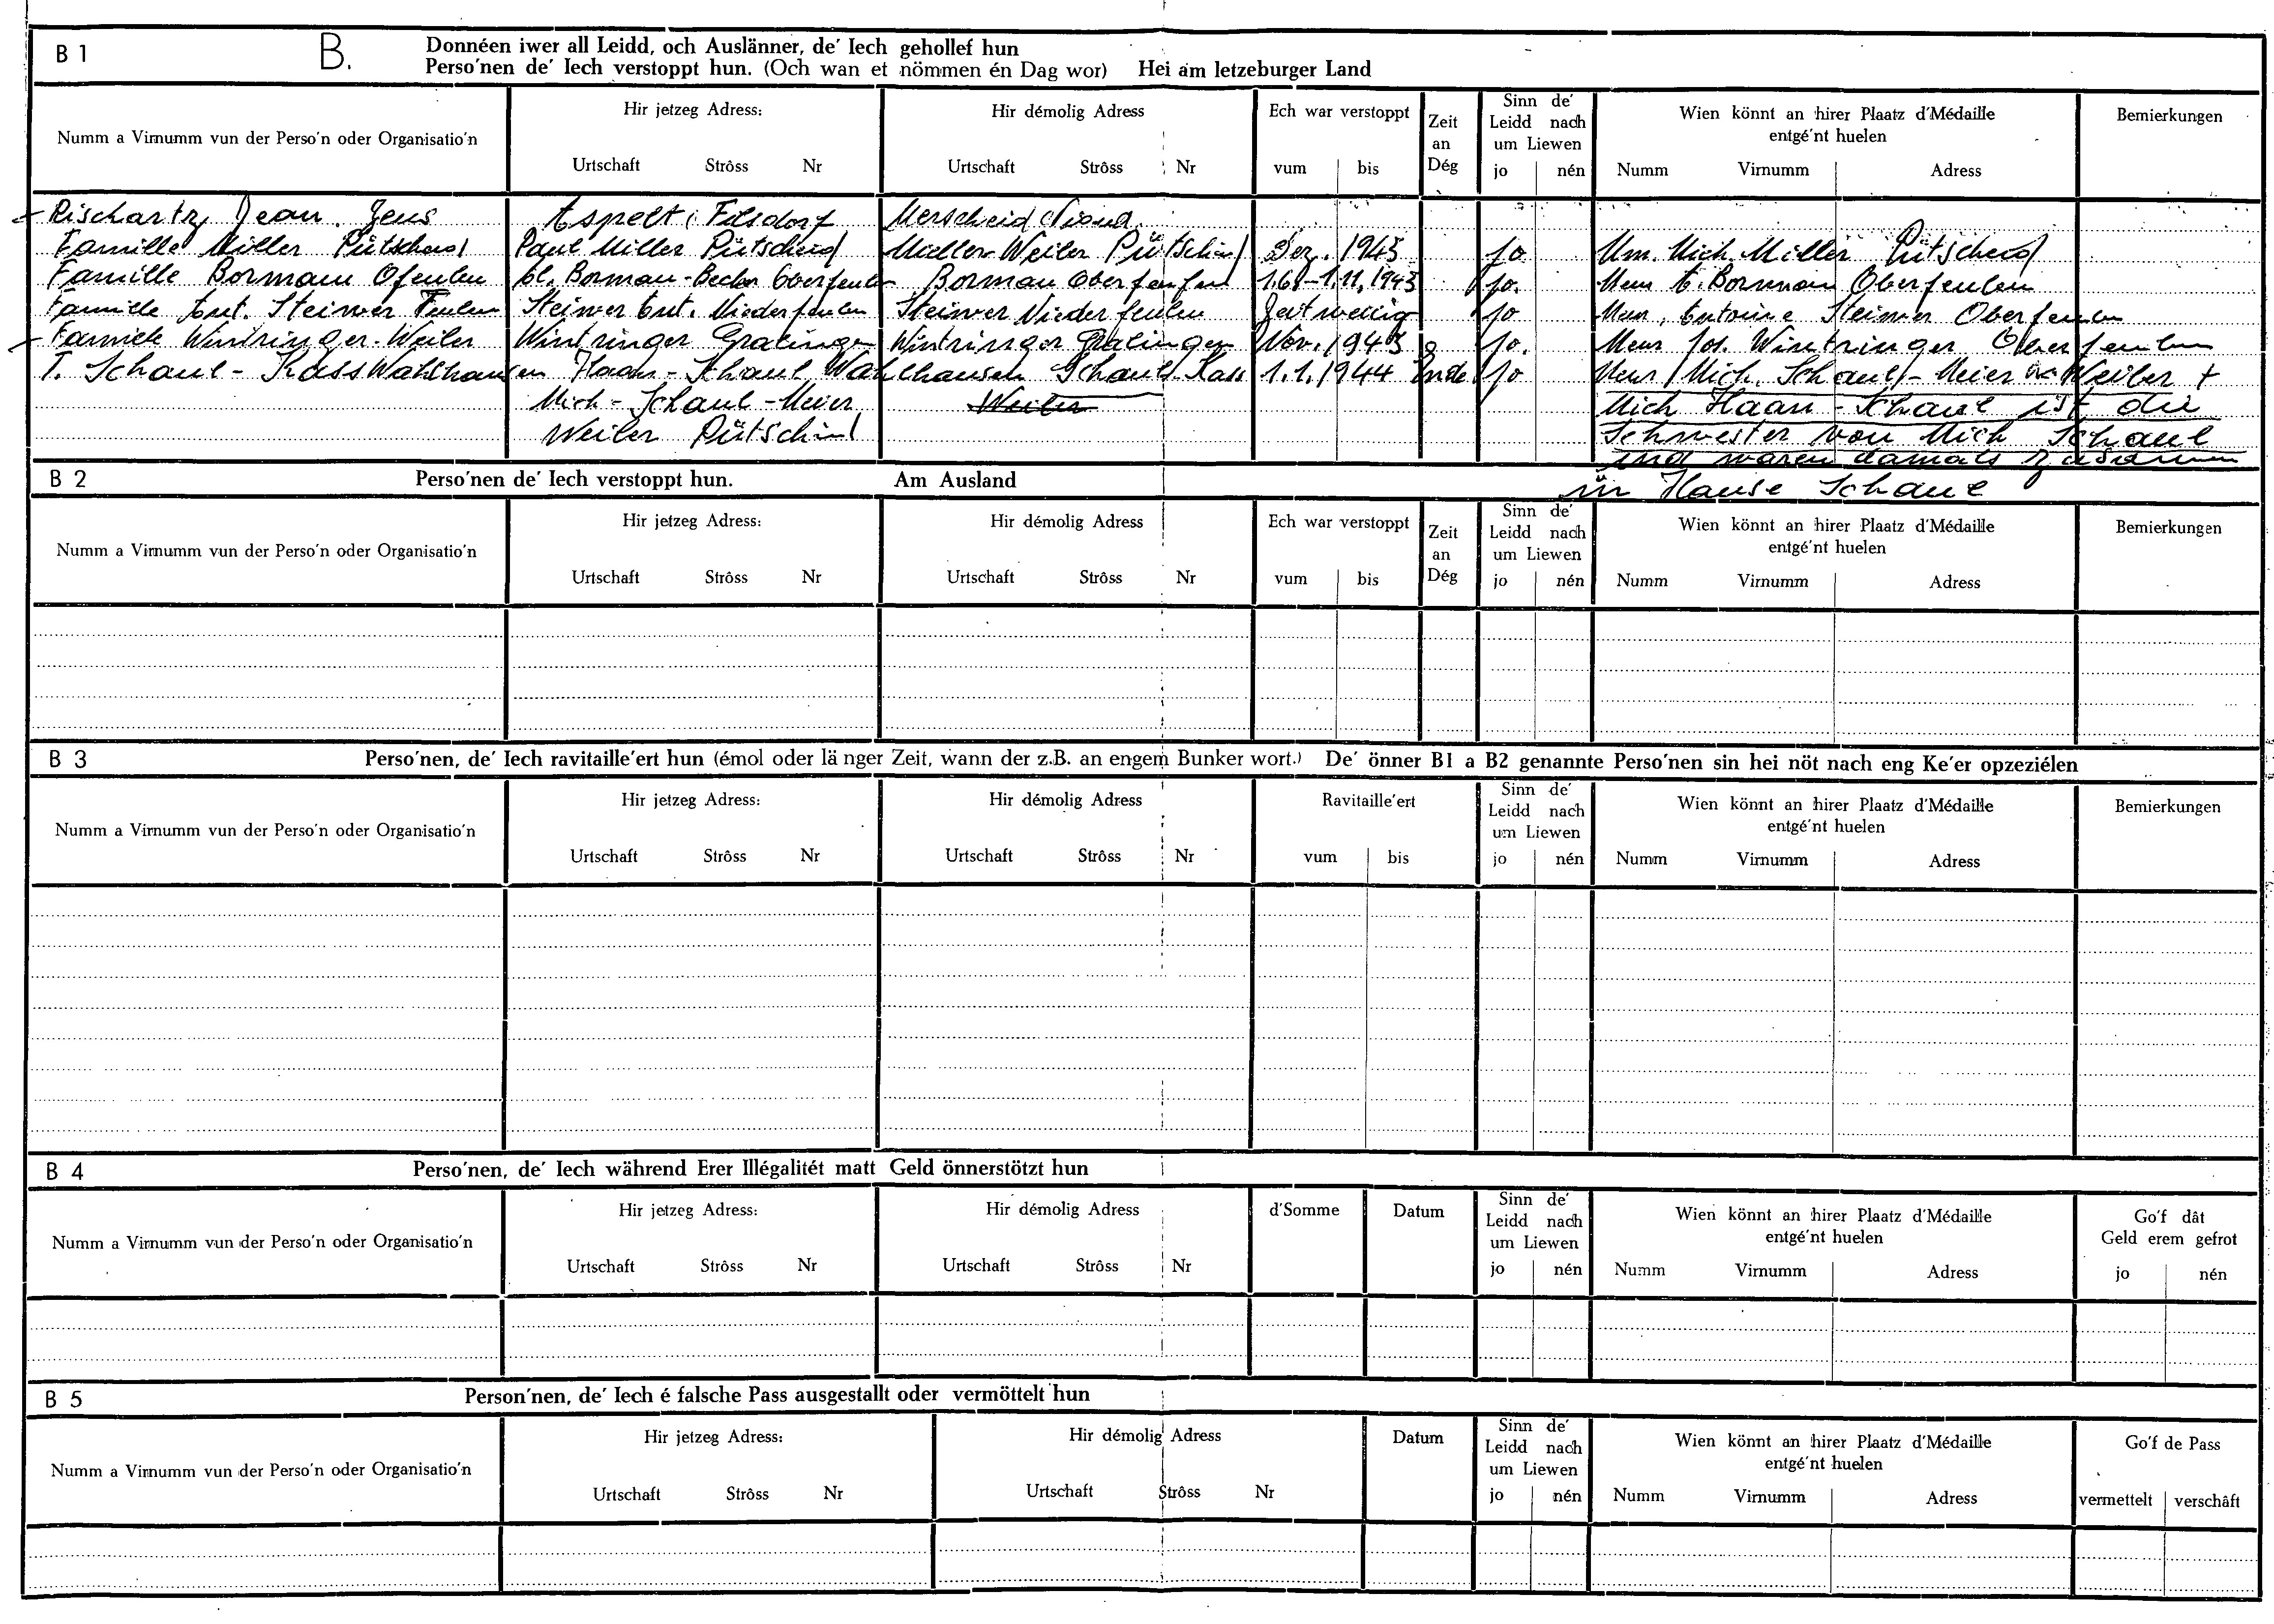 B 1 B. Donnéen iwer all Leidd, och Auslänner, de' Iech gehollef hun
Perso'nen de' Iech verstoppt hun. (Och wan et nömmen én Dag wor) Hei am letzeburger Land
Numm a Virnumm vun der Perso'n oder Organisatio'n
Hir jetzeg Adress:
Urtschaft Strôss Nr
Hir démolig Adress
Urtschaft Strôss Nr
Ech war verstoppt
vum bis
Zeit
an
Dég
Sinn de'
Leidd nach
um Liewen
jo nén
Wien könnt an hirer Plaatz d'Médaille
entgé'nt huelen
Numm Virnumm Adress
Bemierkungen
Rischartz Jean Jeus Aspelt Filsdorf Merscheid
Famille Miller Pütscheid Paul Miller Pütscheid Miller Weiler Pütscheid Dez. 1943 jo Mm. Mich. Miller Pütscheid
Famille Borman Ofeulen Borman-Becker Oberfeulen Borman Oberfeulen 1.11.1943 jo. Borman Oberfeulen
Famille Ant. Steiwer Feulen Steiwer Ant. Niederfeulen Steiwer Niederfeulen Zeitweilig jo Antoine Steiwer Oberfeulen
Famiele Wintringer-Weiler Wintringer Gralingen Wintringer Gralingen Nov. 1943 jo. Jos. Wintringer Oberfeulen
T. Schaul-Kass Wahlhausen Haan-Schaul Wahlhausen Schaul Kass 1.1.1944 Ende jo Mich. Schaul-Meier Weiler +
Mich-Schaul-Meier Weiler Mich Haan-Schaul ist die
Weiler Pütscheid Schwester von Mich Schaul
und waren damals zusamm
im Hause Schaul
B 2 Perso'nen de' Iech verstoppt hun. Am Ausland
Numm a Virnumm vun der Perso'n oder Organisatio'n
Hir jetzeg Adress:
Urtschaft Strôss Nr
Hir démolig Adress
Urtschaft Strôss Nr
Ech war verstoppt
vum bis
Zeit
an
Dég
Sinn de'
Leidd nach
um Liewen
jo nén
Wien könnt an hirer Plaatz d'Médaille
entgé'nt huelen
Numm Virnumm Adress
Bemierkungen
B 3 Perso'nen, de' Iech ravitaille'ert hun (émol oder länger Zeit, wann der z.B. an engem Bunker wort.) De' önner B1 a B2 genannte Perso'nen sin hei nöt nach eng Ke'er opzeziélen
Numm a Virnumm vun der Perso'n oder Organisatio'n
Hir jetzeg Adress:
Urtschaft Strôss Nr
Hir démolig Adress
Urtschaft Strôss Nr
Ravitaille'ert
vum bis
Sinn de'
Leidd nach
um Liewen
jo nén
Wien könnt an hirer Plaatz d'Médaille
entgé'nt huelen
Numm Virnumm Adress
Bemierkungen
B 4 Perso'nen, de' Iech während Erer Illégalitét matt Geld önnerstötzt hun
Numm a Virnumm vun der Perso'n oder Organisatio'n
Hir jetzeg Adress:
Urtschaft Strôss Nr
Hir démolig Adress
Urtschaft Strôss Nr
d'Somme
Datum
Sinn de'
Leidd nach
um Liewen
jo nén
Wien könnt an hirer Plaatz d'Médaille
entgé'nt huelen
Numm Virnumm Adress
Go'f dât
Geld erem gefrot
jo nén
B 5 Person'nen, de' Iech é falsche Pass ausgestallt oder vermöttelt hun
Numm a Virnumm vun der Perso'n oder Organisatio'n
Hir jetzeg Adress:
Urtschaft Strôss Nr
Hir démolig Adress
Urtschaft Strôss Nr
Datum
Sinn de'
Leidd nach
um Liewen
jo nén
Wien könnt an hirer Plaatz d'Médaille
entgé'nt huelen
Numm Virnumm Adress
Go'f de Pass
vermettelt verschâft